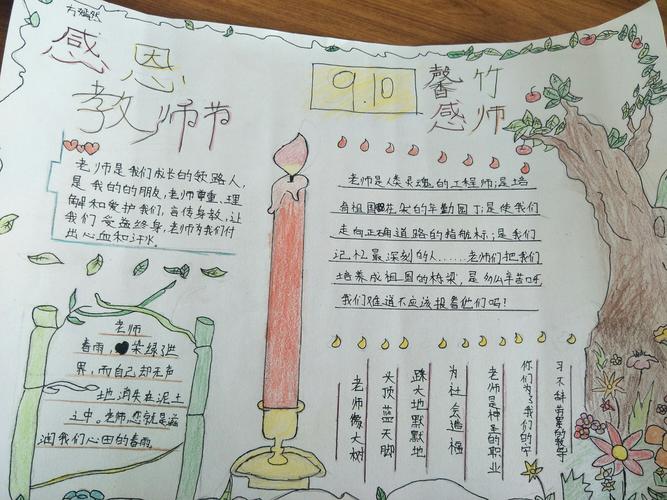 方嫣然
感恩
教师节
9.10
馨竹
感师
老师是我们成长的领路人,
是我的的朋友,老师尊重、理
解和爱护我们,言传身教,让
我们受益终身,老师为我们付
出心血和汗水。
老师是人类灵魂的工程师;是培
育祖国花朵的辛勤园丁;是使我们
走向正确道路的指航标;是我们
记忆最深刻的人……老师们把我们
培养成祖国的栋梁,是多么辛苦呀
我们难道不应该报答他们吗!
老师
春雨,染绿了世
界,而自己却无声
地消失在泥土
之中。老师,您就是滋
润我们心田的春雨
老师像大树
头顶蓝天脚
踩大地默默地
为社会造福
老师是神圣的职业
你们为了我们的学
习不辞劳累的教导